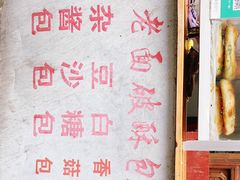 老面破酥包
杂酱包
豆沙包
白糖包
香菇包